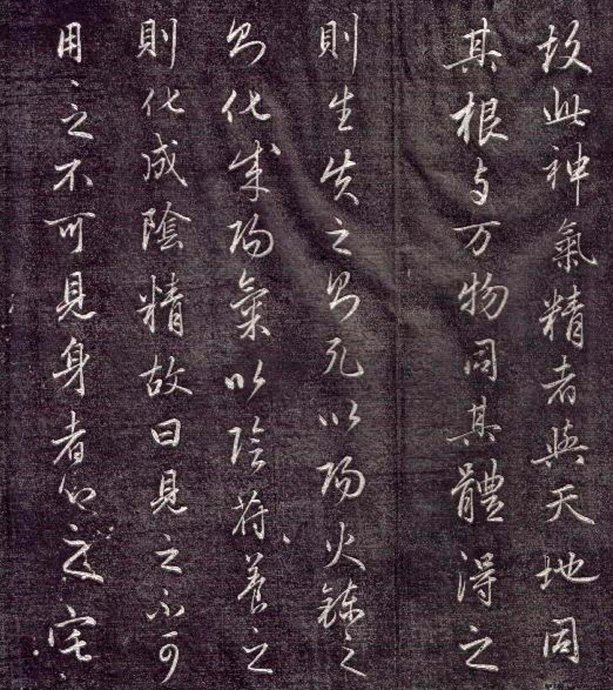 故此神氣精者與天地同
其根与万物同其體得之
則生失之即死以陽火鍊之
即化成陽氣以陰符養之
則化成陰精故曰見之不可
用之不可見身者心之宅